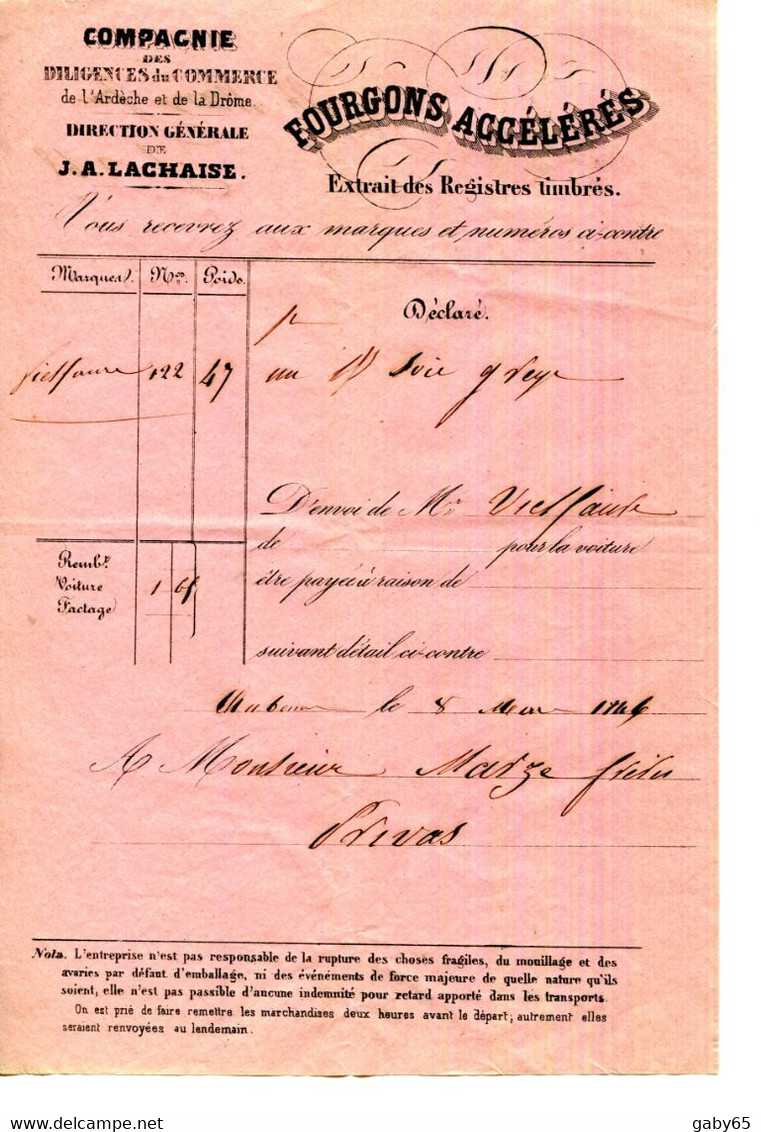 COMPAGNIE
DES
DILIGENCES du COMMERCE
de l'Ardèche et de la Drôme.
DIRECTION GÉNÉRALE
DE
J. A. LACHAISE.
FOURGONS ACCÉLÉRÉS
Extrait des Registres timbrés.
Vous recevrez aux marques et numéros ci-contre
Marques. Nos. Poids.
Déclaré.
122 47 un Soie
D'envoi de Mr
de pour la voiture
être payée à raison de
Rembt
Voiture 1 65
Factage
suivant détail ci-contre
Aubenas le 8 184
A Monsieur Maize frères
Privas
Nota. L'entreprise n'est pas responsable de la rupture des choses fragiles, du mouillage et des
avaries par défaut d'emballage, ni des événements de force majeure de quelle nature qu'ils
soient, elle n'est pas passible d'aucune indemnité pour retard apporté dans les transports.
On est prié de faire remettre les marchandises deux heures avant le départ; autrement elles
seraient renvoyées au lendemain.
gaby65